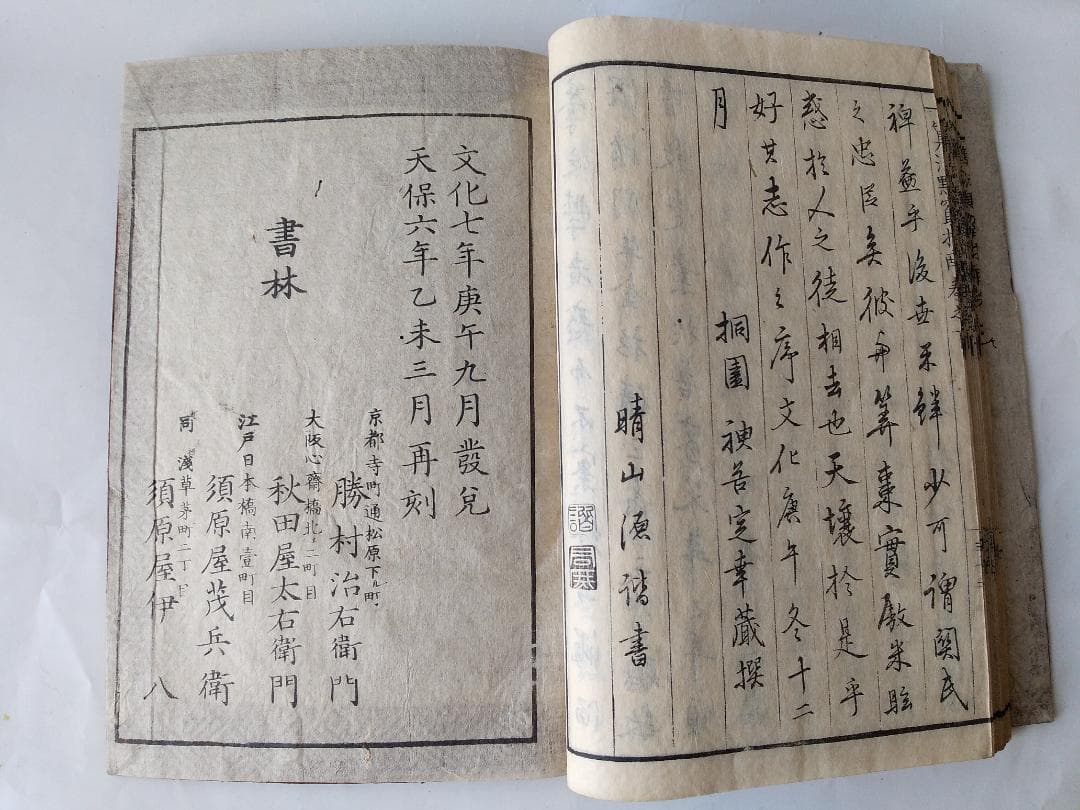 裨益乎後世不鮮少可謂関民
之忠臣矣彼舟筭棗實啟米眩
惑於人之徒相去也天壤於是乎
好其志作之序文化庚午冬十二
月
桐園 神吉定幸蔵撰
晴山源諧書
文化七年庚午九月發兌
天保六年乙未三月再刻
書林
京都寺町通松原下ル町
勝村治右衛門
大阪心齋橋北二町目
秋田屋太右衛門
江戸日本橋南壹町目
須原屋茂兵衛
同 淺草茅町二丁目
須原屋伊八